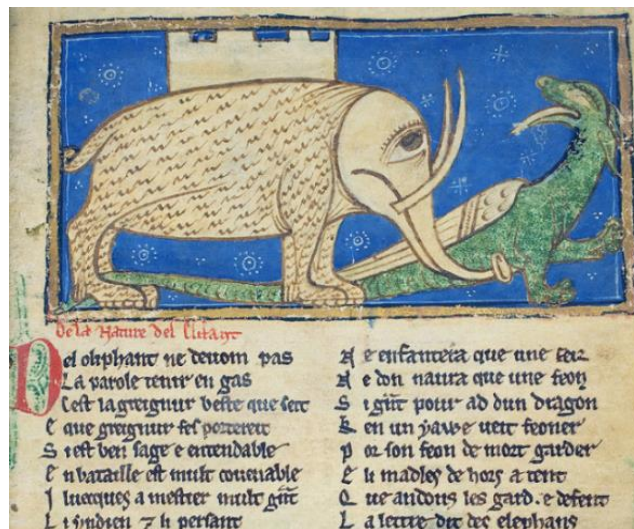 De la Nature del Elifant
Del oliphant ne devom pas
La parole tenir en gas
Cest la greignur beste que seit
E que greignur fes portereit
Si est ben sage e entendable
En bataille est mult covenable
Iluecques a mester mult grant
Li yndien 7 li persant
Ne enfantera que une feiz
Ne don naura que une feon
Si grant pour ad dun dragon
Ken un yawe veit feoner
Por son feon de mort garder
E li madles de hors atent
Que andous les gard. e defent
La lettre dit des elephans